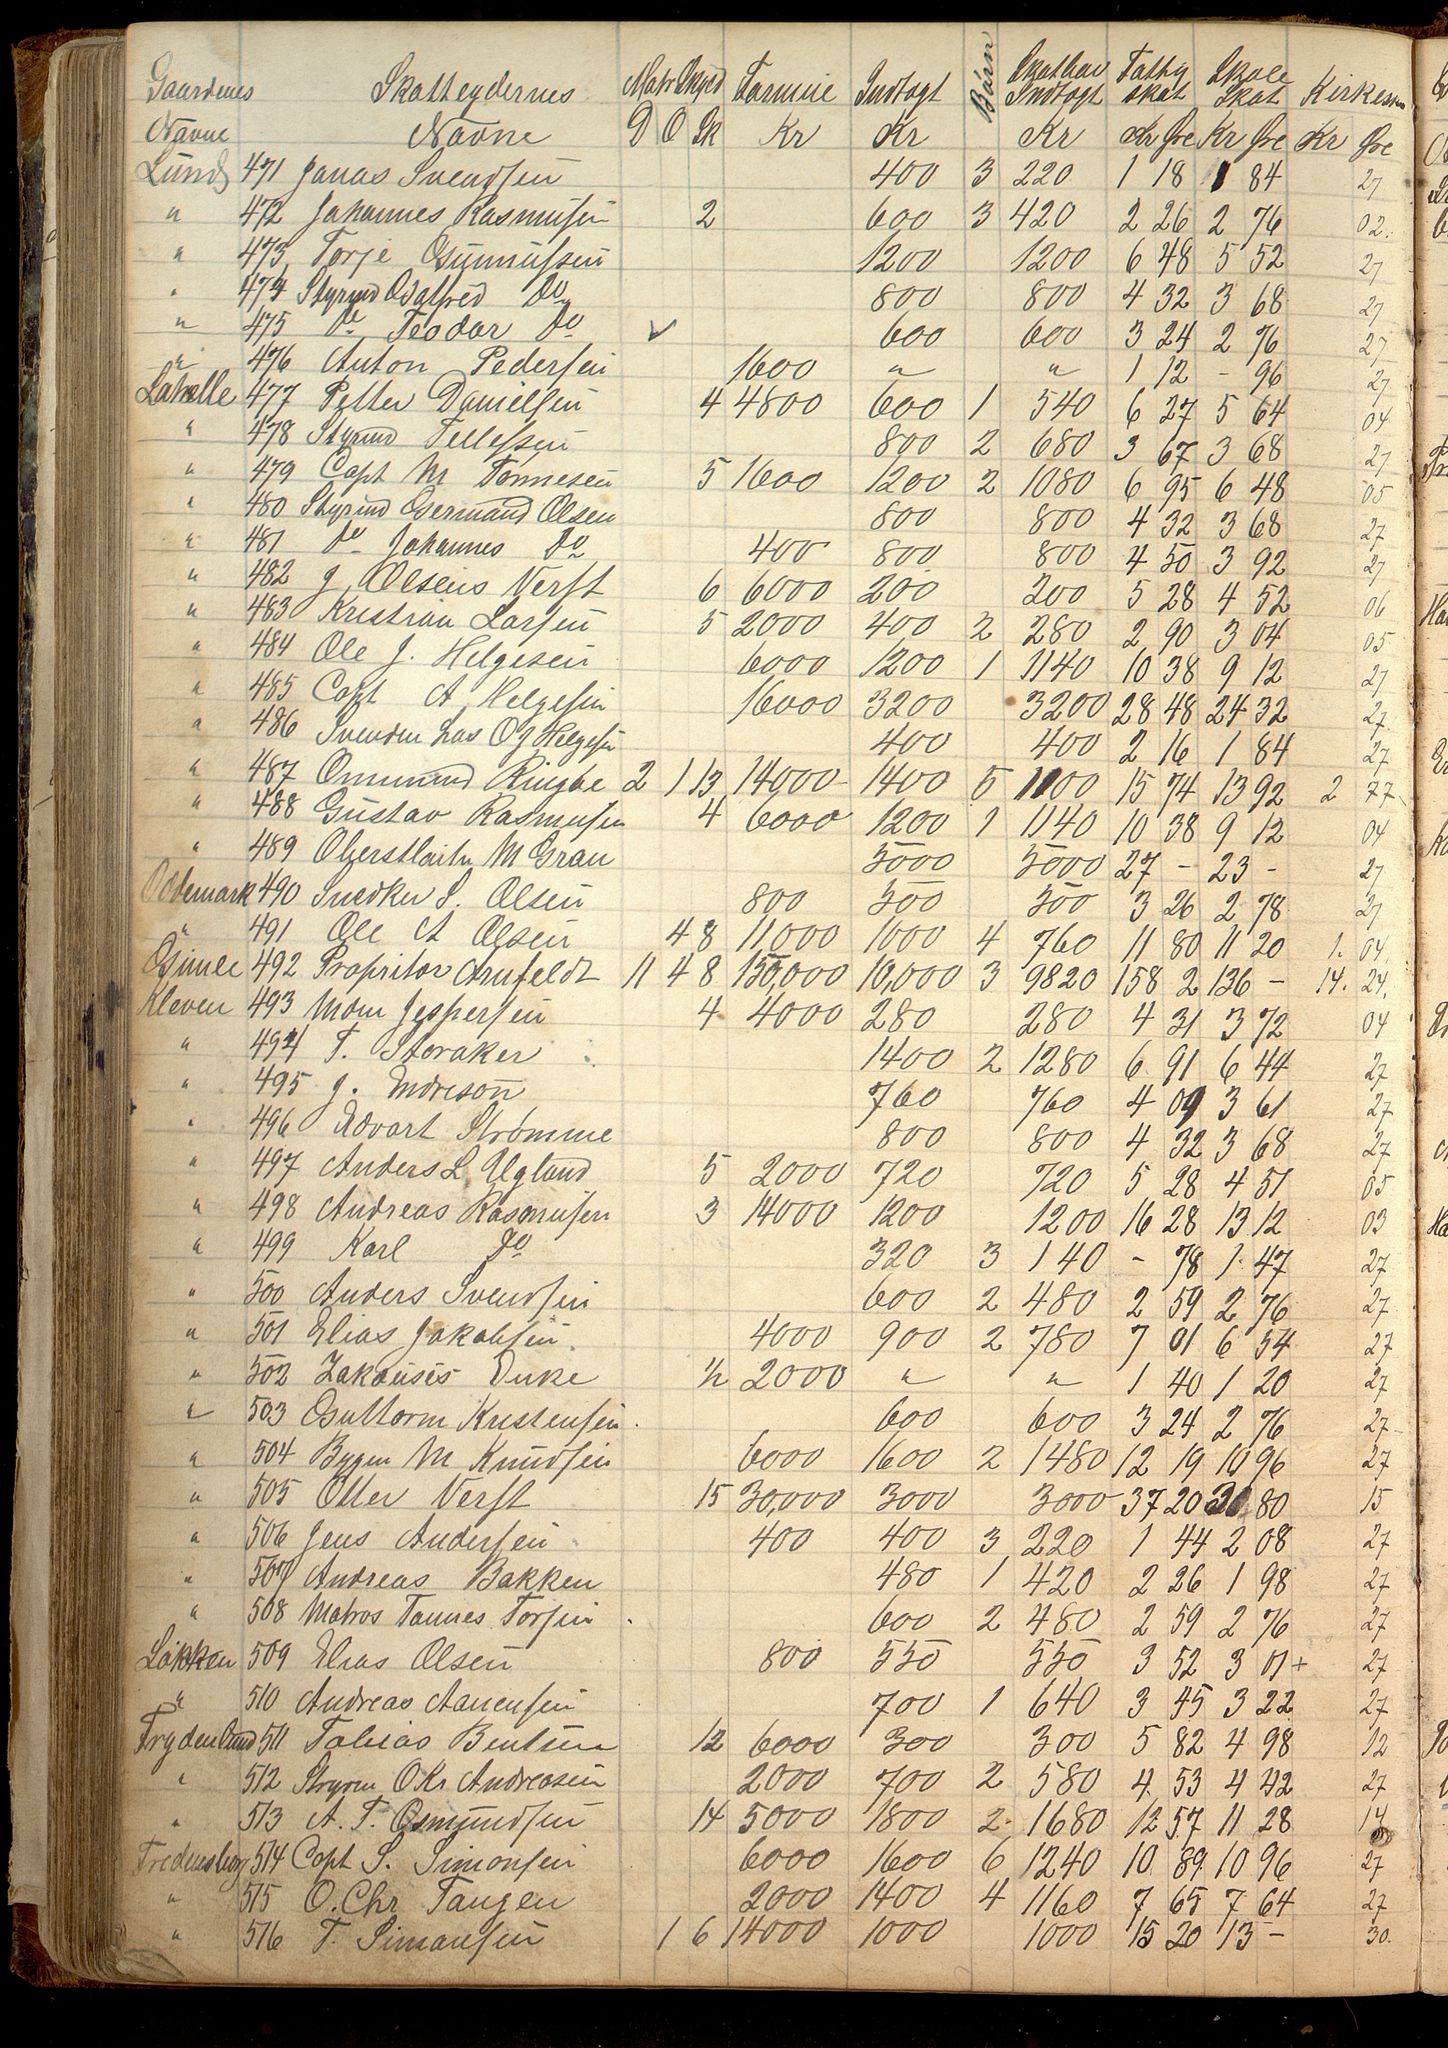 Gaardenes Skatteydernes Matr Skyld Formue Indtægt Børn Skatbar Indtægt Fattig skat Skole Skat Kirkesk
Navne Navne D O Sk Kr Kr Kr Kr Øre Kr Øre Kr Øre
Lunds 471 Jonas Svendsen 400 3 220 1 18 1 84 27
" 472 Johannes Rasmusen 2 600 3 420 2 26 2 76 02.
" 473 Torje Gunnufsen 1200 1200 6 48 5 52 27
" 474 Styrmd Odalfred Do 800 800 4 32 3 68 27
" 475 do Teodor Do ✓ 600 600 3 24 2 76 27
" 476 Anton Pedersen 1600 " " 1 12 - 96 27
Lahelle 477 Petter Danielsen 4 4800 600 1 540 6 27 5 64 04
" 478 Styrmd Tellefsen 800 2 680 3 67 3 68 27
" 479 Capt M Tønnesen 5 1600 1200 2 1080 6 95 6 48 05
" 480 Styrmd Germand Olsen 800 800 4 32 3 68 27
" 481 do Johannes Do 400 800 800 4 50 3 92 27
" 482 J. Olsens Verft 6 6000 200 200 5 28 4 52 06
" 483 Kristian Larsen 5 2000 400 2 280 2 90 3 04 05
" 484 Ole J. Helgesen 6000 1200 1 1140 10 38 9 12 27
" 485 Capt A Helgesen 16000 3200 3200 28 48 24 32 27
" 486 Svenden hos O J Helgesen 400 400 2 16 1 84 27
" 487 Ommund Ringbe 2 1 13 14000 1400 5 1100 15 74 13 92 2 77
" 488 Gustav Rasmusen 4 6000 1200 1 1140 10 38 9 12 04
" 489 Oberstløitn M Gran 5000 5000 27 - 23 - 27
Oddemark 490 Snedker S. Olsen 800 500 500 3 26 2 78 27
" 491 Ole A Olsen 4 8 11000 1000 4 760 11 80 11 20 1. 04.
Gimle 492 Propritær Arnfeldt 11 4 8 150,000 10,000 3 9820 158 2 136 - 14. 24.
Kleven 493 Mom Jespersen 4 4000 280 280 4 31 3 72 04
" 494 T. Storaker 1400 2 1280 6 91 6 44 27
" 495 J. Endreson 760 760 4 09 3 61 27
" 496 Edvart Strømme 800 800 4 32 3 68 27
" 497 Anders L. Ugland 5 2000 720 720 5 28 4 51 05
" 498 Andreas Rasmusen 3 14000 1200 1200 16 28 13 12 03
" 499 Karl Do 320 3 140 - 78 1. 47 27
" 500 Anders Svendsen 600 2 480 2 59 2 76 27
" 501 Elias Jakobsen 4000 900 2 780 7 01 6 54 27
" 502 Zakarises Enke ½ 2000 " " 1 40 1 20 27
" 503 Guttorm Kristensen 600 600 3 24 2 76 27
" 504 Bygm M Knudsen 6000 1600 2 1480 12 19 10 96 27
" 505 Otter Verft 15 30,000 3000 3000 37 20 30 80 15
" 506 Jens Andersen 400 400 3 220 1 44 2 08 27
" 507 Andreas Bakken 480 1 420 2 26 1 98 27
" 508 Matros Tønnes Torsen 600 2 480 2 59 2 76 27
Løkken 509 Elias Olsen 800 550 550 3 52 3 01+ 27
" 510 Andreas Aanensen 700 1 640 3 45 3 22 27
Frydenlund 511 Tobias Bentsen 12 6000 300 300 5 82 4 98 12
" 512 Styrm O Kr Andreasen 2000 700 2 580 4 53 4 42 27
" 513 A. T. Osmundsen 14 5000 1800 2 1680 12 57 11 28 14
Fredensborg 514 Capt S. Simonsen 6000 1600 6 1240 10 89 10 96 27
" 515 O. Chr Tangen 2000 1400 4 1160 7 65 7 64 27
" 516 T. Simonsen 1 6 14000 1000 1000 15 20 13 - 30.